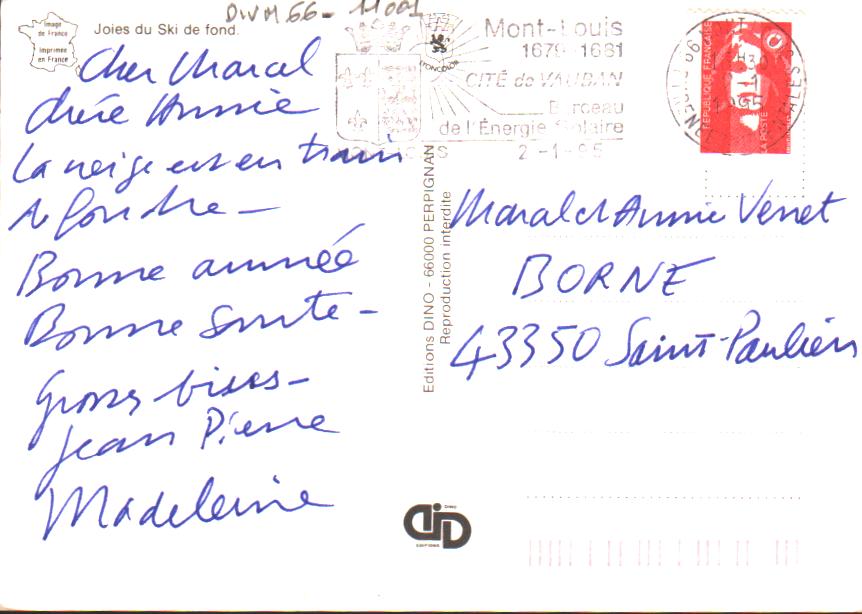 DIVM 66 - 11001
Image
de France
Imprimée
en France
Joies du Ski de fond.
Cher Marcel
chère Annie
La neige est en train
de fondre -
Bonne année
Bonne Santé -
Grosses bises -
Jean Pierre
Madeleine
Mont-Louis
1679-1681
CITÉ de VAUBAN
Berceau
de l'Énergie Solaire
2-1-95
RÉPUBLIQUE FRANÇAISE
LA POSTE
1995
Editions DINO - 66000 PERPIGNAN
Reproduction interdite
Marcel et Annie Verret
BORNE
43350 Saint-Paulien
DINO
EDITIONS